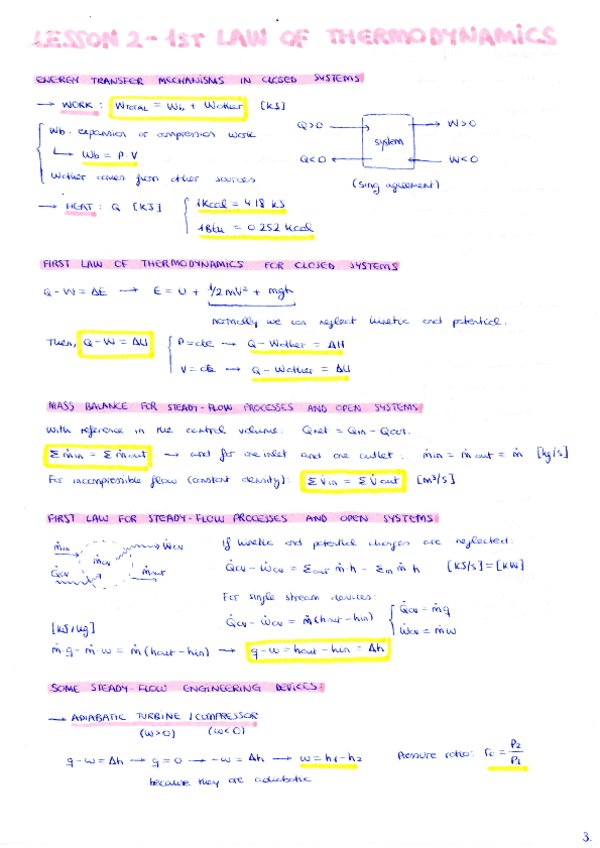 LESSON 2 - 1ST LAW OF THERMODYNAMICS
ENERGY TRANSFER MECHANISMS IN CLOSED SYSTEMS
→ WORK : WTOTAL = Wb + Wother [KJ]
Wb: expansion or compression work
↳ Wb = P·V
Wother comes from other sources
Q>0 → system → W>0
Q<0 ← W<0
(sing agreement)
→ HEAT : Q [KJ]
1Kcal = 4.18 KJ
1Btu = 0.252 Kcal
FIRST LAW OF THERMODYNAMICS FOR CLOSED SYSTEMS
Q - W = ΔE → E = U + 1/2 mV² + mgh
normally we can neglect kinetic and potential.
Then, Q - W = ΔU
P = cte → Q - Wother = ΔH
V = cte → Q - Wother = ΔU
MASS BALANCE FOR STEADY-FLOW PROCESSES AND OPEN SYSTEMS
With reference in the control volume: Qnet = Qin - Qout.
Σ ṁin = Σ ṁout → and for one inlet and one outlet : ṁin = ṁout = ṁ [kg/s]
For incompressible flow (constant density): Σ V̇in = Σ V̇out [m³/s]
FIRST LAW FOR STEADY-FLOW PROCESSES AND OPEN SYSTEMS
ṁin ẆCV
mCV
Q̇CV ṁout
If kinetic and potential changes are neglected:
Q̇CV - ẆCV = Σout ṁ h - Σin ṁ h [KJ/s] = [KW]
For single stream devices:
Q̇CV - ẆCV = ṁ(hout - hin)
Q̇CV = ṁq
ẆCV = ṁw
[KJ/kg]
ṁ·q - ṁ w = ṁ(hout - hin) → q - w = hout - hin = Δh
SOME STEADY-FLOW ENGINEERING DEVICES:
→ ADIABATIC TURBINE / COMPRESSOR
(W>0) (W<0)
q - w = Δh → q = 0 → -w = Δh → w = h1 - h2
because they are adiabatic
Pressure ratio: rc = P2/P1
3.